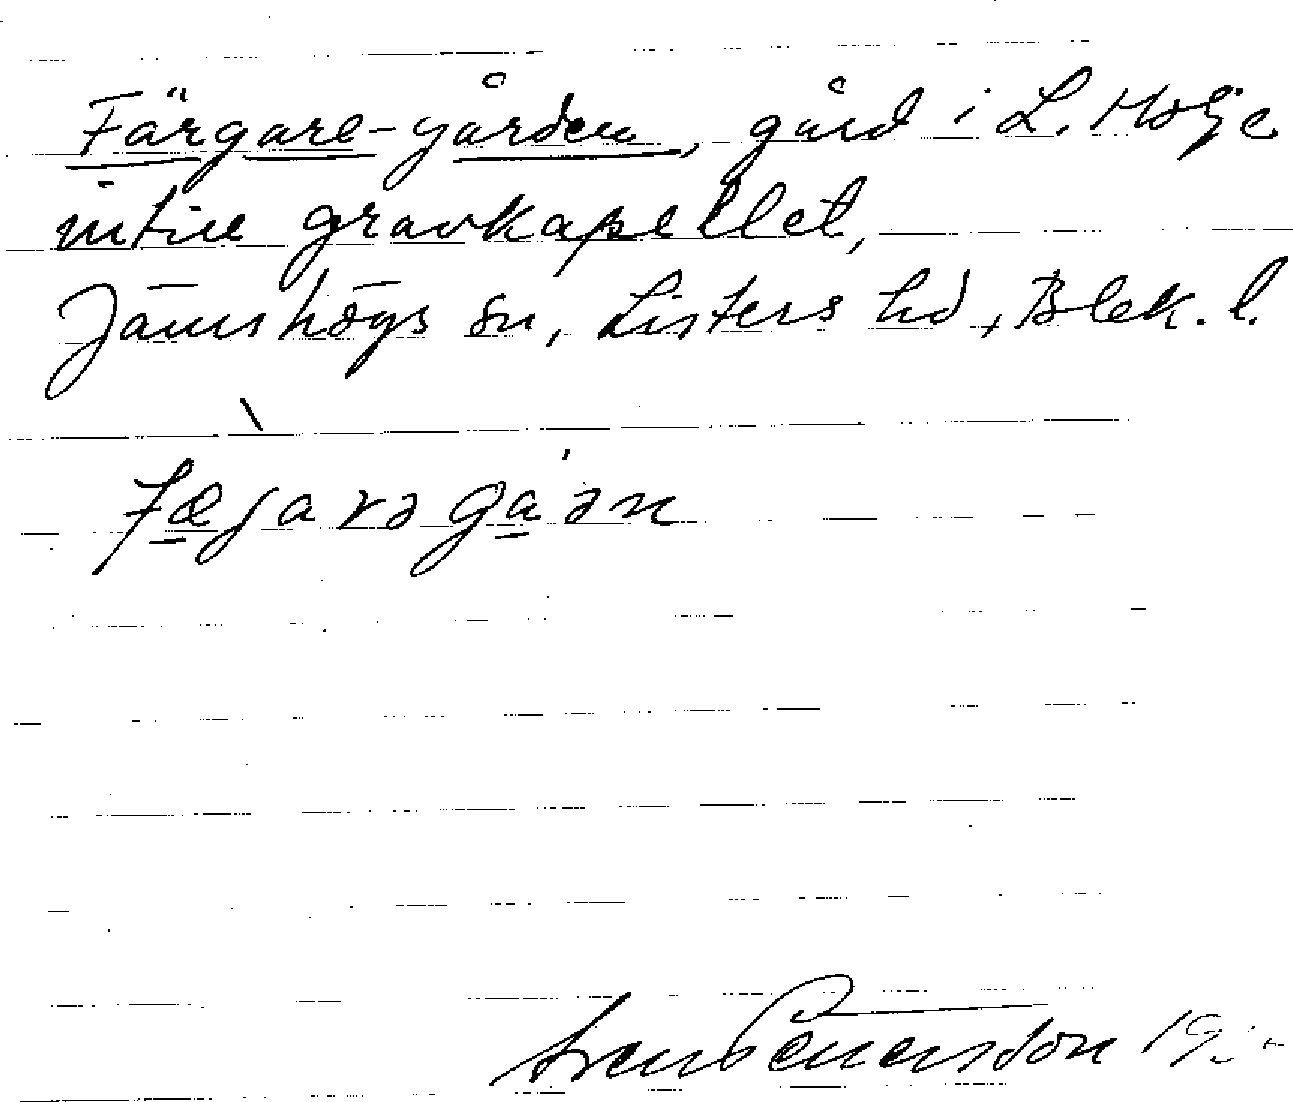 Färgare-gården, gård i L. Holje
intill gravkapellet,
Jämshögs sn, Listers hd, Blek. l.
fæjarəgaən
Sven Benenson